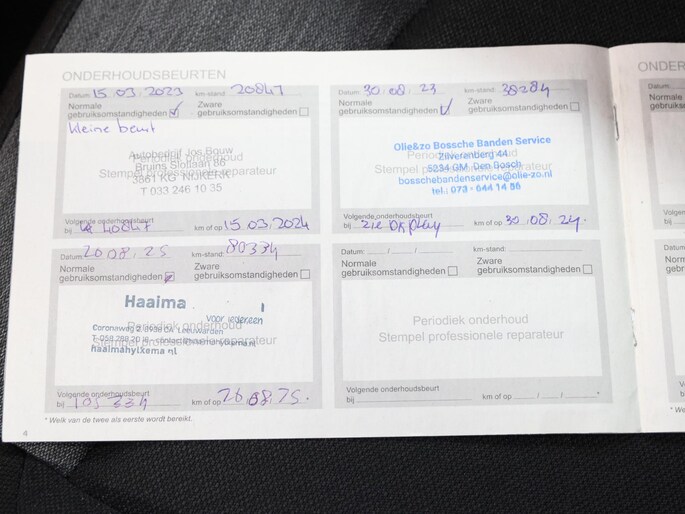 ONDERHOUDSBEURTEN
Datum: 15.03.2023 km-stand: 20847
Normale gebruiksomstandigheden
Zware gebruiksomstandigheden
kleine beurt
Autobedrijf Jos Bouw
Periodiek onderhoud
Bruins Slotlaan 88
Stempel professionele reparateur
3861 KG NIJKERK
T 033 246 10 35
Volgende onderhoudsbeurt
bij 40847 km of op 15.03.2024
Datum: 30.08.23 km-stand: 38284
Normale gebruiksomstandigheden
Zware gebruiksomstandigheden
Olie&zo Bossche Banden Service
Zilverenberg 44
Periodiek onderhoud
5234 GM Den Bosch
Stempel professionele reparateur
bosschebandenservice@olie-zo.nl
tel.: 073 - 644 14 86
Volgende onderhoudsbeurt
bij zie display km of op 30.08.24.
Datum: 20.08.25 km-stand: 80334
Normale gebruiksomstandigheden
Zware gebruiksomstandigheden
Haaima
voor iedereen
Periodiek onderhoud
Leeuwarden
Stempel professionele reparateur
haaimahylkema.nl
Volgende onderhoudsbeurt
bij 105334 km of op
Datum: / / km-stand:
Normale gebruiksomstandigheden
Zware gebruiksomstandigheden
Periodiek onderhoud
Stempel professionele reparateur
Volgende onderhoudsbeurt
bij km of op / / *
* Welk van de twee als eerste wordt bereikt.
4
ONDER
Datum:
Norma
gebru